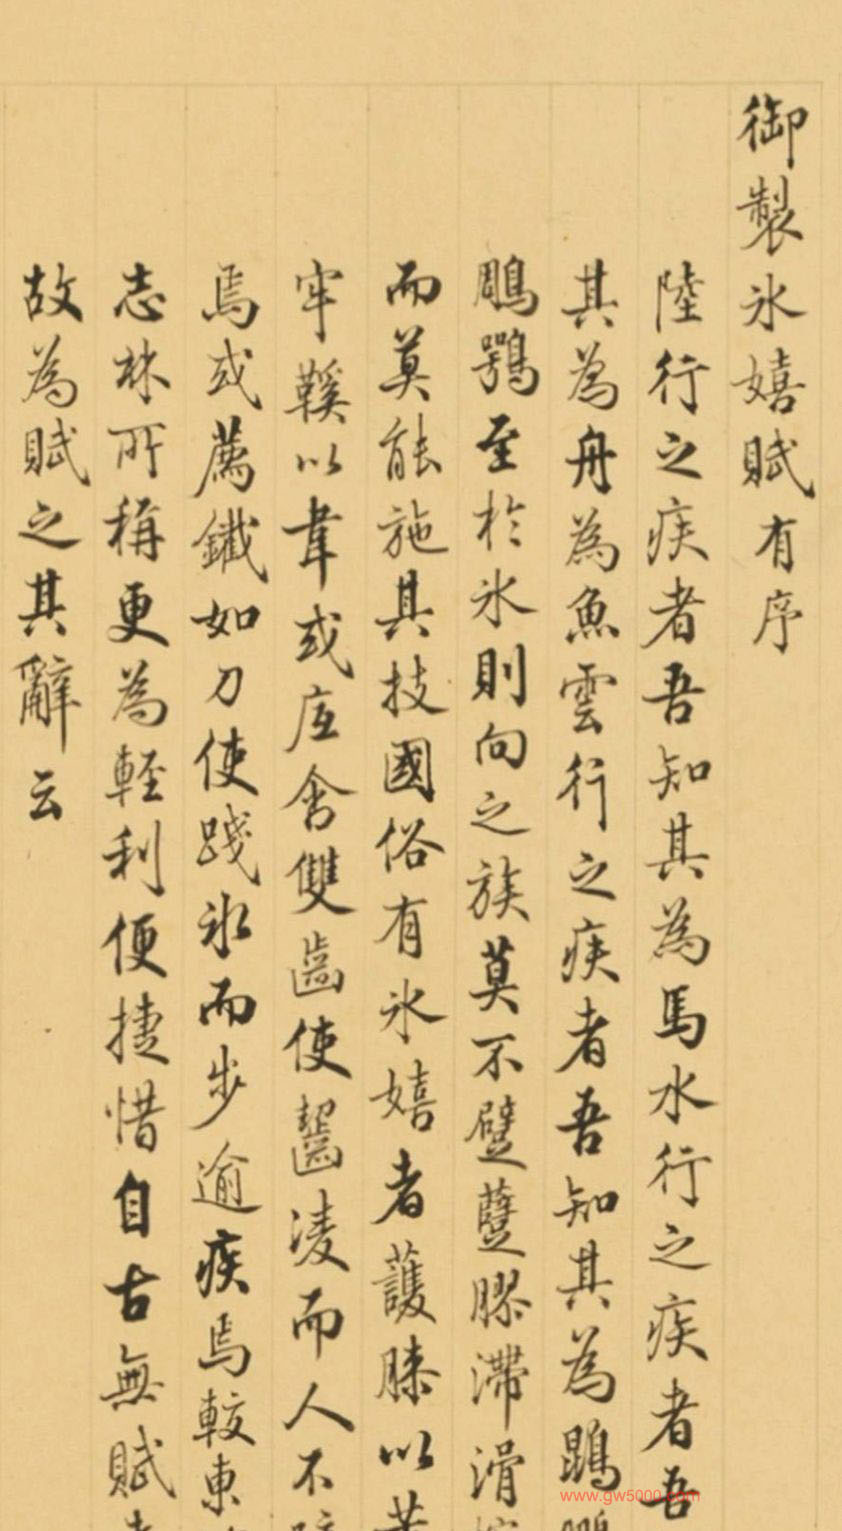 御製氷嬉賦有序
陸行之疾者吾知其為馬水行之疾者吾
其為舟為魚雲行之疾者吾知其為鵾
鵰鶚至於氷則向之族莫不躄躠膠滯滑
而莫能施其技國俗有氷嬉者護膝以芾
牢鞵以韋或底含雙齒使齧凌而人不
焉或薦鐵如刀使踐氷而步逾疾焉較東
志林所稱更為輕利便捷惜自古無賦
故為賦之其辭云
www.gw5000.com